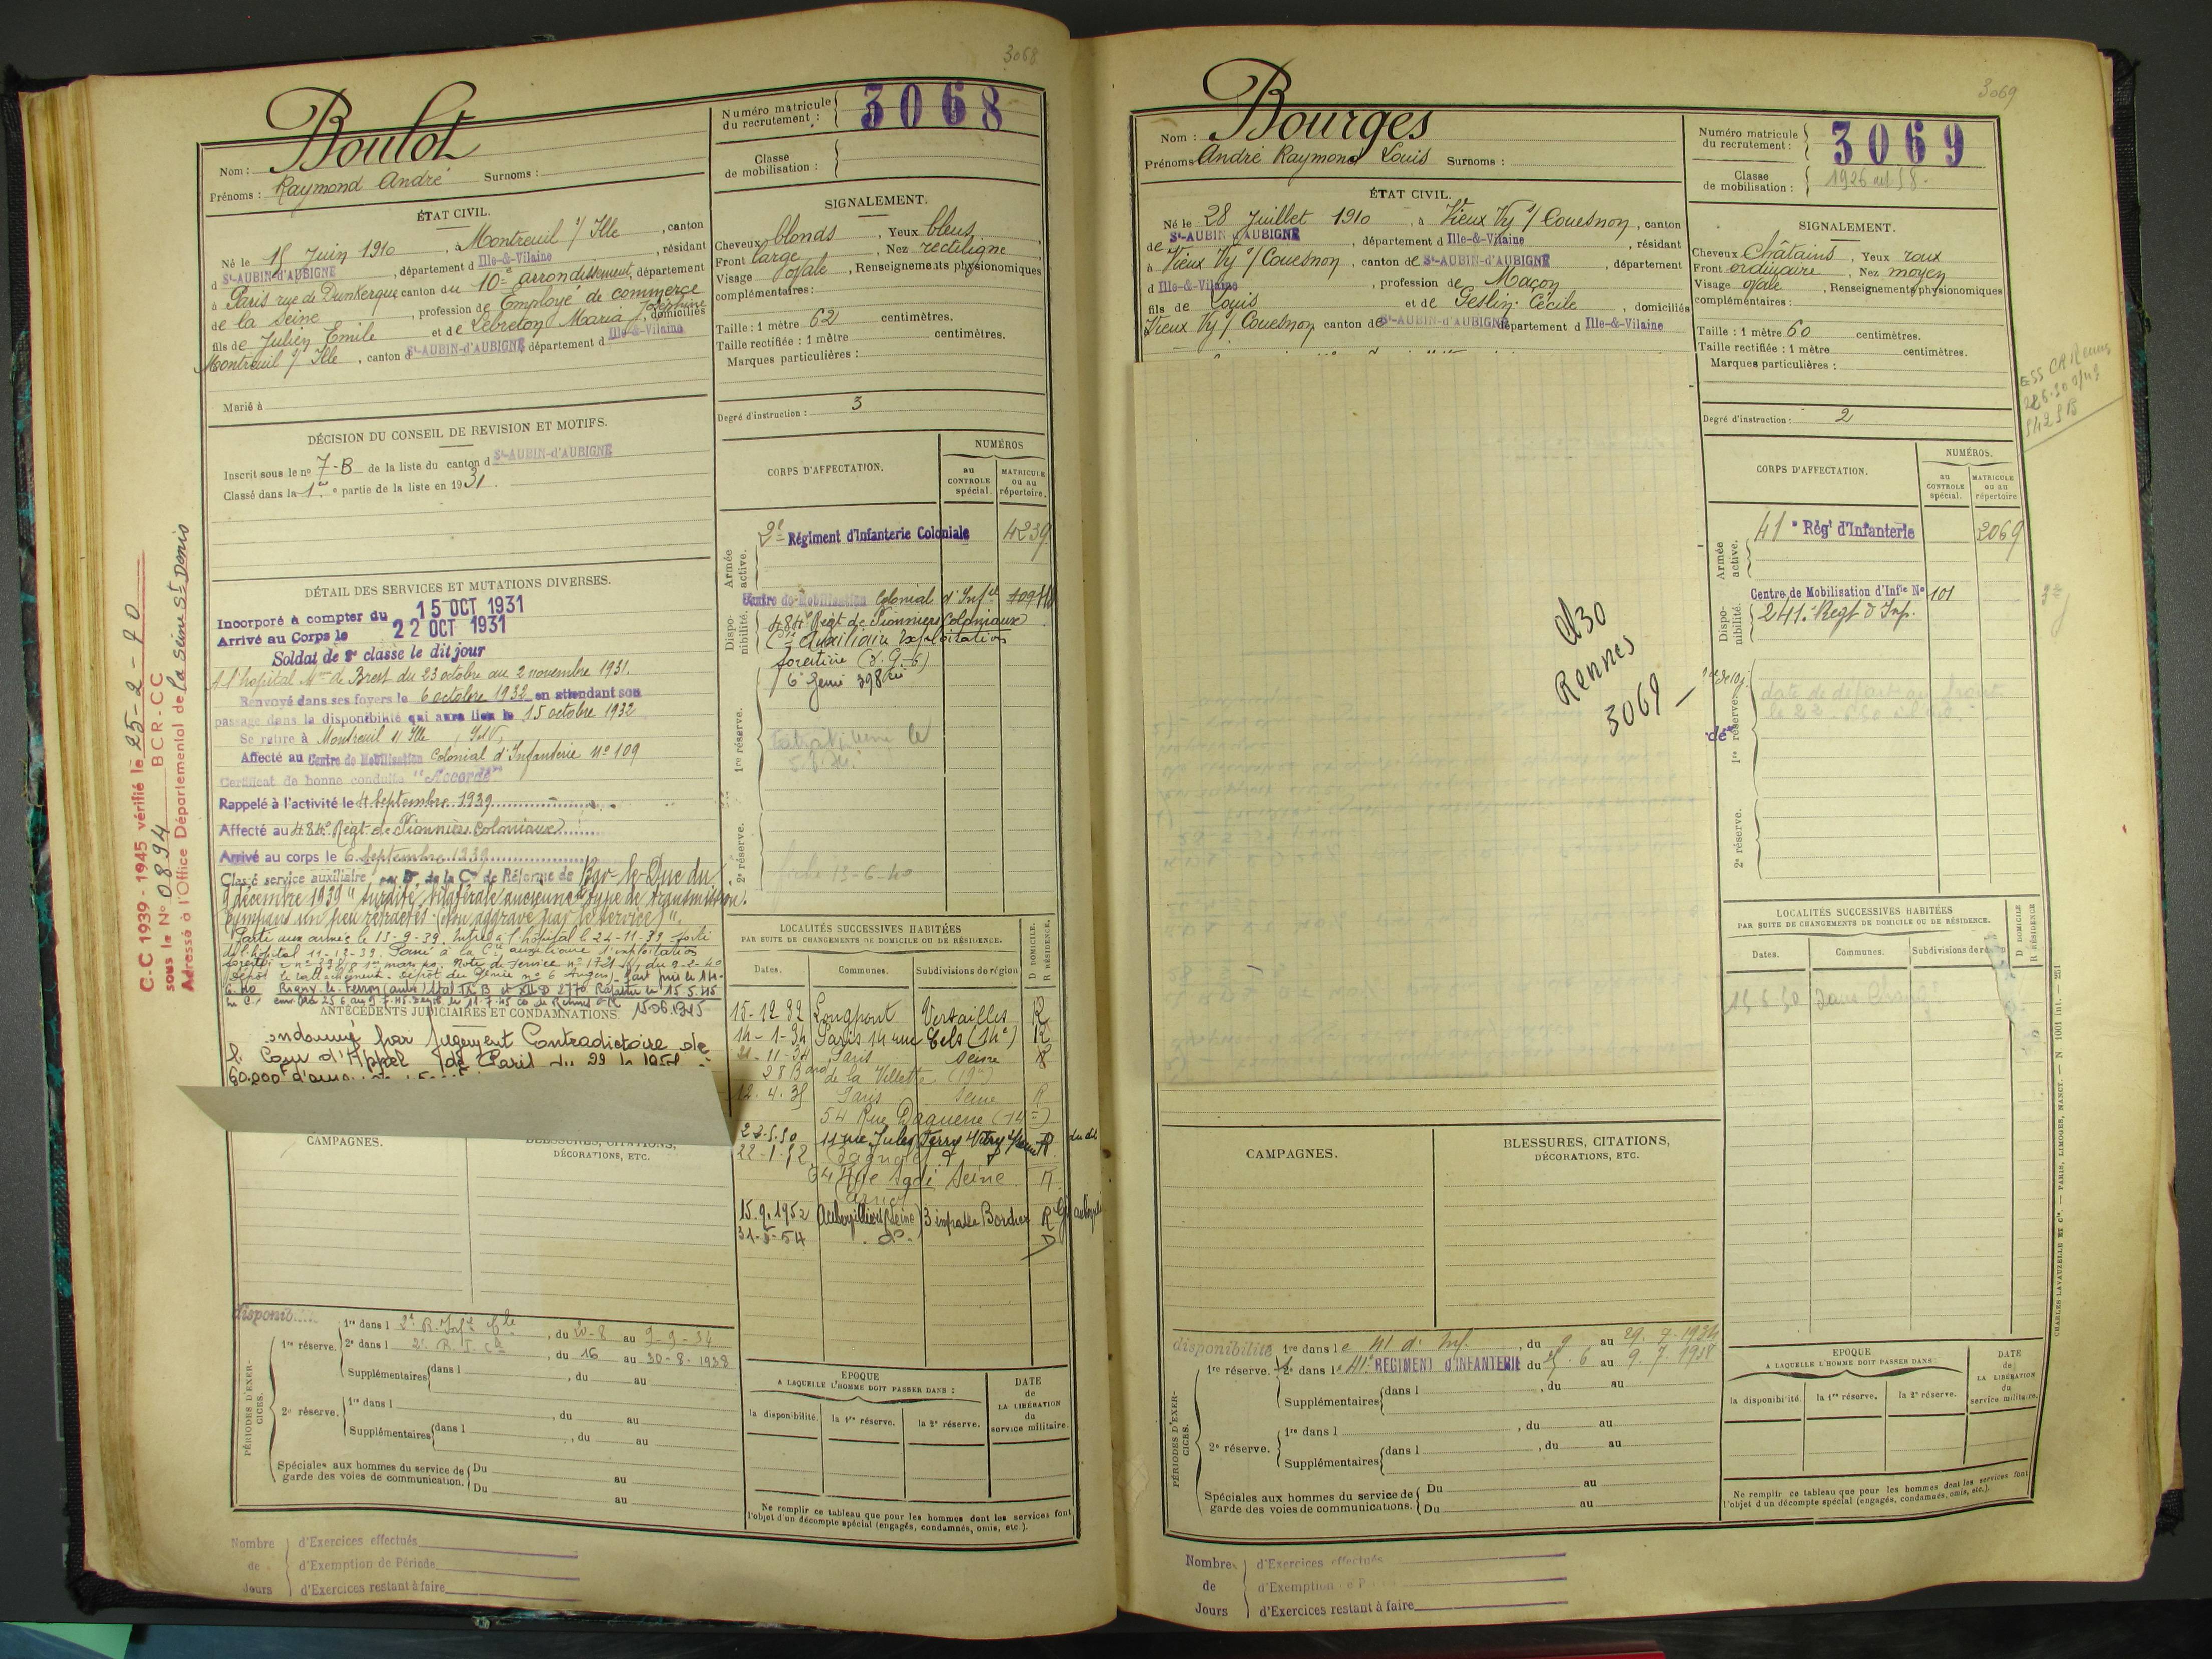 3068
Nom : Boulot
Prénoms : Raymond André Surnoms :
Numéro matricule
du recrutement : 3068
Classe
de mobilisation :
ÉTAT CIVIL.
Né le 15 Juin 1910, à Montreuil s/ Ille, canton
d St-AUBIN-d'AUBIGNÉ, département d Ille-&-Vilaine, résidant
à Paris rue de Dunkerque canton du 10e arrondissement, département
de la Seine, profession de Employé de commerce
fils de Julien Emile et de Lebreton Maria Joséphine, domiciliés
Montreuil s/ Ille, canton d St-AUBIN-d'AUBIGNÉ département d Ille-&-Vilaine
Marié à
SIGNALEMENT.
Cheveux blonds, Yeux bleus,
Front large, Nez rectiligne
Visage ovale, Renseignements physionomiques
complémentaires :
Taille : 1 mètre 62 centimètres.
Taille rectifiée : 1 mètre centimètres.
Marques particulières :
Degré d'instruction : 3
DÉCISION DU CONSEIL DE REVISION ET MOTIFS.
Inscrit sous le no 7-B de la liste du canton d St-AUBIN-d'AUBIGNÉ
Classé dans la 1re partie de la liste en 1931.
CORPS D'AFFECTATION.
NUMÉROS
au CONTROLE spécial.
MATRICULE ou au répertoire.
Armée active.
2e Régiment d'Infanterie Coloniale 4239
Disponibilité.
Centre de Mobilisation Colonial d'Infie 109
484e Régt de Pionniers Coloniaux
Cie Auxiliaire Exploitation
forestière
6e Génie 398
1re réserve.
2e réserve.
fiche 13-6-40
DÉTAIL DES SERVICES ET MUTATIONS DIVERSES.
Incorporé à compter du 15 OCT 1931
Arrivé au Corps le 22 OCT 1931
Soldat de 2e classe le dit jour
A l'hopital Mme de Brest du 23 octobre au 2 novembre 1931.
Renvoyé dans ses foyers le 6 octobre 1932 en attendant son
passage dans la disponibilité qui aura lieu le 15 octobre 1932
Se retire à Montreuil s/ Ille, I et V.
Affecté au Centre de Mobilisation Colonial d'Infanterie No 109
Certificat de bonne conduite "Accordé"
Rappelé à l'activité le 4 Septembre 1939
Affecté au 484e Régt de Pionniers Coloniaux
Arrivé au corps le 6 Septembre 1939
Classé service auxiliaire par Don de la Con de Réforme de Bar-le-Duc du
9 décembre 1939 "surdité bilatérale ancienne type de transmission.
tympans un peu rétractés (non aggravé par le service)".
Parti aux armées le 13-9-39. Entré à l'hopital le 24-11-39 sorti
de l'hopital 11-12-39. Passé à la Cie auxiliaire d'exploitation
Dépôt de rattachement. Dépôt du Génie no 6 Angers. Fait pris. le 14-
6-40 Rigny-le-Ferron (aube) Stal
ANTÉCÉDENTS JUDICIAIRES ET CONDAMNATIONS.
ondamné par jugement Contradictoire de
Cour d'Appel de Paris du
60.000 d'amende
C.C 1939-1945 vérifié le 25-2-70
sous le No 0894 BCR-CC
Adressé à l'Office Départemental de la Seine St Denis
LOCALITÉS SUCCESSIVES HABITÉES
PAR SUITE DE CHANGEMENTS DE DOMICILE OU DE RÉSIDENCE.
Dates. Communes. Subdivisions de région D DOMICILE. R RÉSIDENCE.
15-12-32 Longpont Versailles R
14-1-34 Paris 14 rue Cels (14e) R
21-11-34 Paris Seine R
28 Bard de la Villette (19e)
12.4.35 Paris Seine R
54 Rue Daguerre (14e)
23-5-50 11 rue Jules Ferry Vitry s/Seine R
22-1-52 Bagnolet
64 Rue Sadi Seine R
Carnot
15.9.1952 Aubervilliers (Seine) 3 impasse Bordier R
31-5-54 do. D
CAMPAGNES.
BLESSURES, CITATIONS,
DÉCORATIONS, ETC.
disponib
PÉRIODES D'EXERCICES.
1re réserve. 1re dans l 2e R. Infie Cle, du 20-8 au 9-9-34
2e dans l 2e R.I.C., du 16 au 30-8-1938
Supplémentaires dans l , du au
2e réserve. 1re dans l , du au
Supplémentaires dans l , du au
Spéciales aux hommes du service de
garde des voies de communication. Du au
Du au
EPOQUE
A LAQUELLE L'HOMME DOIT PASSER DANS :
la disponibilité. la 1re réserve. la 2e réserve.
DATE de LA LIBÉRATION du service militaire.
Ne remplir ce tableau que pour les hommes dont les services font
l'objet d'un décompte spécial (engagés, condamnés, omis, etc.).
Nombre de Jours
d'Exercices effectués
d'Exemption de Période
d'Exercices restant à faire
3069
Nom : Bourges
Prénoms André Raymond Louis Surnoms :
Numéro matricule
du recrutement : 3069
Classe
de mobilisation : 1926
ÉTAT CIVIL.
Né le 28 Juillet 1910, à Vieux Vy s/ Couesnon, canton
de St-AUBIN-d'AUBIGNÉ, département d Ille-&-Vilaine, résidant
à Vieux Vy s/ Couesnon, canton de St-AUBIN-d'AUBIGNÉ, département
d Ille-&-Vilaine, profession de Maçon
fils de Louis et de Geslin Cécile, domiciliés
Vieux Vy s/ Couesnon canton de St-AUBIN-d'AUBIGNÉ département d Ille-&-Vilaine
SIGNALEMENT.
Cheveux Châtains, Yeux roux
Front ordinaire, Nez moyen
Visage ovale, Renseignements physionomiques
complémentaires :
Taille : 1 mètre 60 centimètres.
Taille rectifiée : 1 mètre centimètres.
Marques particulières :
Degré d'instruction : 2
CORPS D'AFFECTATION.
NUMÉROS.
au CONTROLE spécial.
MATRICULE ou au répertoire
Armée active.
41e Régt d'Infanterie 2069
Disponibilité.
Centre de Mobilisation d'Infie No 101
241e Regt d'Inf.
1re réserve.
2e réserve.
d30
Rennes
3069
LOCALITÉS SUCCESSIVES HABITÉES
PAR SUITE DE CHANGEMENTS DE DOMICILE OU DE RÉSIDENCE.
Dates. Communes. Subdivisions de région D DOMICILE R RÉSIDENCE
CAMPAGNES.
BLESSURES, CITATIONS,
DÉCORATIONS, ETC.
disponibilité
PÉRIODES D'EXERCICES.
1re réserve. 1re dans le 41 d'Inf., du 9 au 29.7.1934
2e dans le 41e REGIMENT d'INFANTERIE du 6 au 9.7.1938
Supplémentaires dans l , du au
2e réserve. 1re dans l , du au
Supplémentaires dans l , du au
Spéciales aux hommes du service de
garde des voies de communications. Du au
Du au
EPOQUE
A LAQUELLE L'HOMME DOIT PASSER DANS :
la disponibilité. la 1re réserve. la 2e réserve.
DATE de LA LIBÉRATION du service militaire.
Ne remplir ce tableau que pour les hommes dont les services font
l'objet d'un décompte spécial (engagés, condamnés, omis, etc.).
CHARLES-LAVAUZELLE ET Cie. — PARIS, LIMOGES, NANCY. — N 1001 int. — 251
Nombre de Jours
d'Exercices effectués
d'Exemption
d'Exercices restant à faire